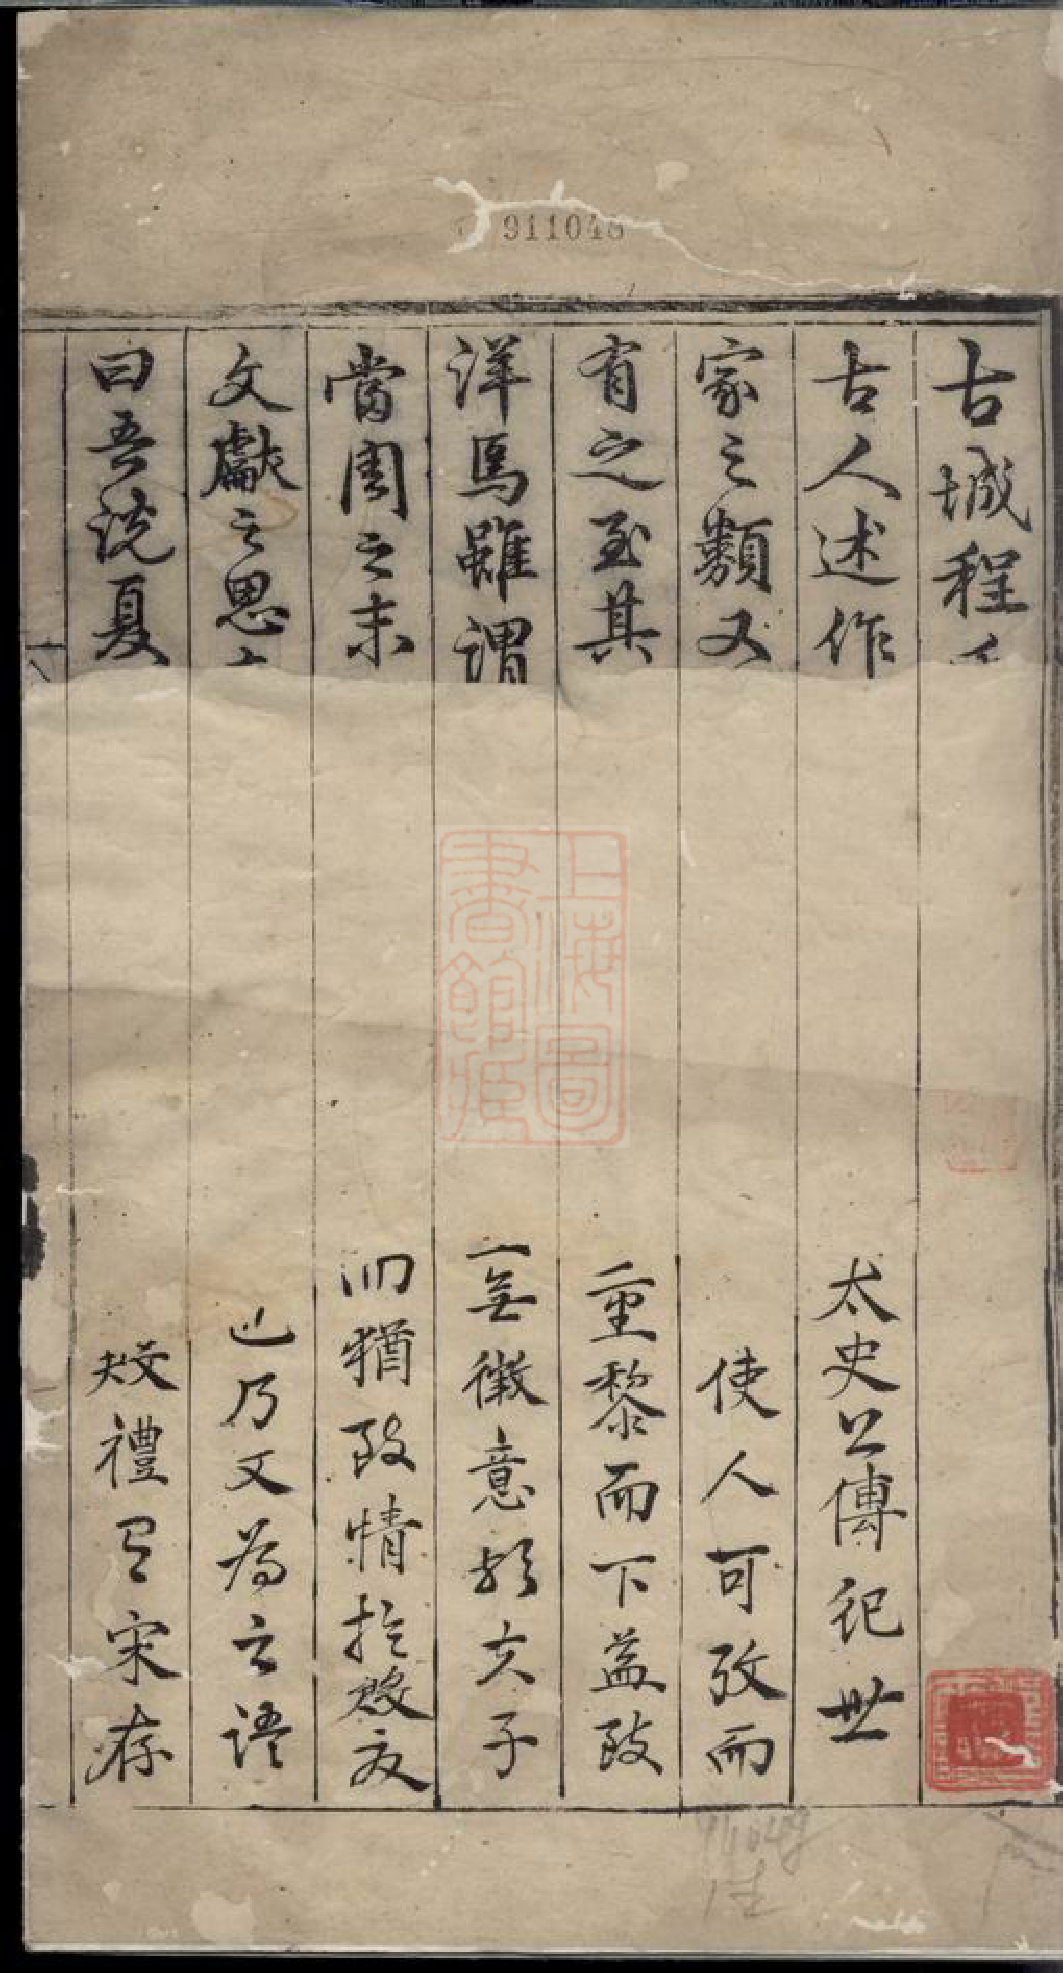 911048
古城程
古人述作
太史公傳記世
家之類又
使人可攷而
有之至其
重黎而下益致
洋焉雖謂
無徵意於夫子
當周之末
猶致情於殷夏
文獻之思
乃文為之語
曰吾說夏
殷禮有宋存
上海圖書館藏